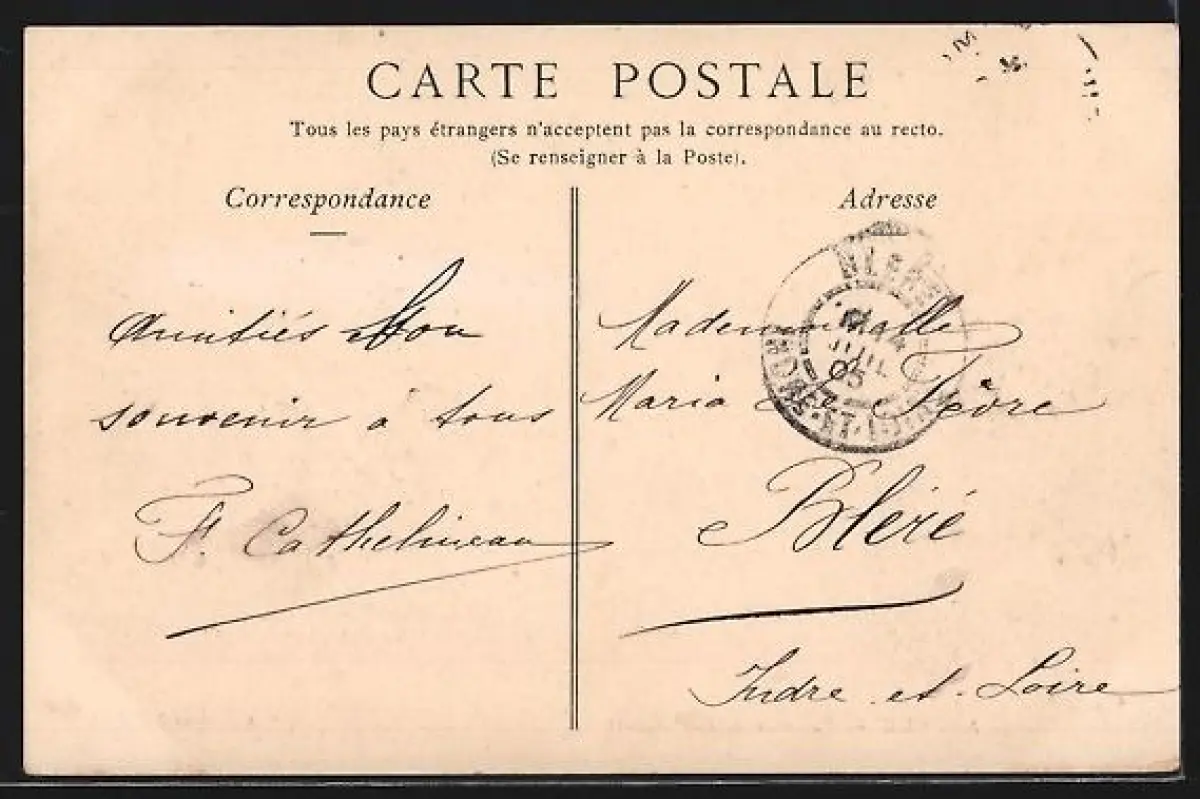 CARTE POSTALE
Tous les pays étrangers n'acceptent pas la correspondance au recto.
(Se renseigner à la Poste).
Correspondance
Amitiés Bon
souvenir à tous
F. Cathelineau
Adresse
Mademoiselle
Maria Fèvre
Bléré
Indre et Loire
14
JUIL
05
INDRE-ET-LOIRE